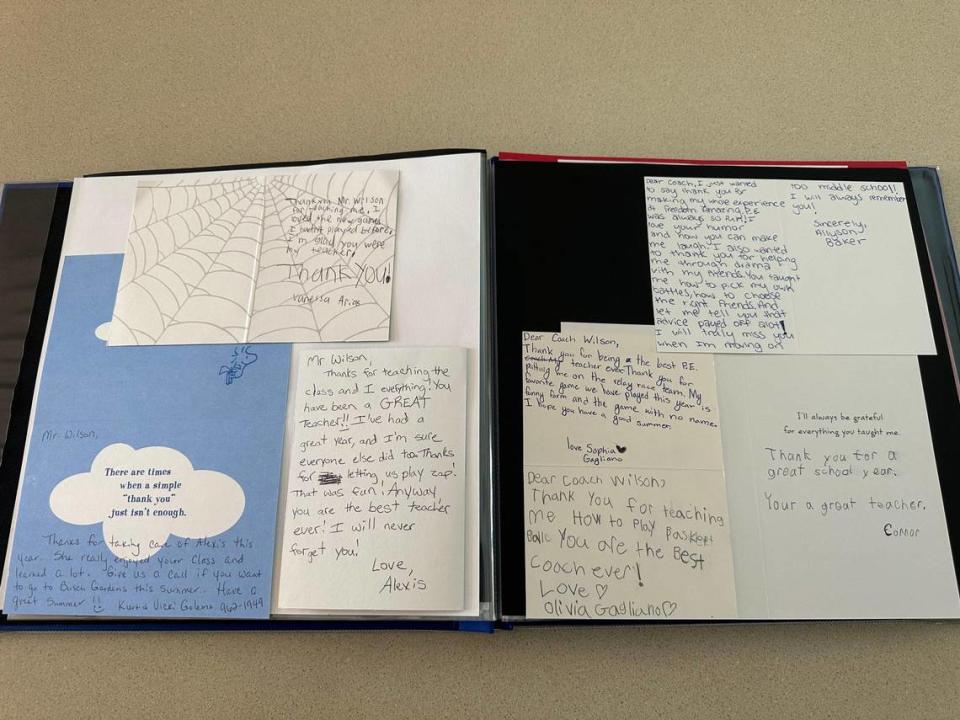 Thankyou Mr. Wilson
for teaching me. I
loved the new games
I hadn't played before.
I'm glad you were
my teacher.
Thank you!
Vanessa Arias
Mr. Wilson,
There are times
when a simple
"thank you"
just isn't enough.
Thanks for taking care of Alexis this
year. She really enjoyed your class and
learned a lot. Give us a call if you want
to go to Busch Gardens this summer. Have a
great Summer!! Kurt & Vicki Golema 962-1949
Mr Wilson,
Thanks for teaching the
class and I everything! You
have been a GREAT
Teacher!! I've had a
great year, and I'm sure
everyone else did too. Thanks
for letting us play zap!
That was fun! Anyway,
you are the best teacher
ever! I will never
forget you!
Love,
Alexis
Dear Coach, I just wanted
to say thank you for
making my whole experience
at Freedom amazing. P.E
was always so fun! I
love your humor
and how you can make
me laugh. I also wanted
to thank you for helping
me through drama
with my friends. You taught
me how to pick my own
battles, how to choose
the right friends. And
let me tell you that
advice payed off alot!
I will truly miss you
when I'm moving on
too middle school!
I will always remember
you!
Sincerely,
Allyson
Baker
Dear Coach Wilson,
Thank you for being the best P.E.
teacher ever. Thank you for
putting me on the relay race team. My
favorite game we have played this year is
funny farm and the game with no name.
I hope you have a good summer.
love Sophia
Gagliano
Dear Coach Wilson,
Thank You for teaching
me How to Play Basket
Ball. You are the Best
Coach ever!
Love ♡
Olivia Gagliano♡
I'll always be grateful
for everything you taught me.
Thank you for a
great school year.
Your a great teacher.
Connor